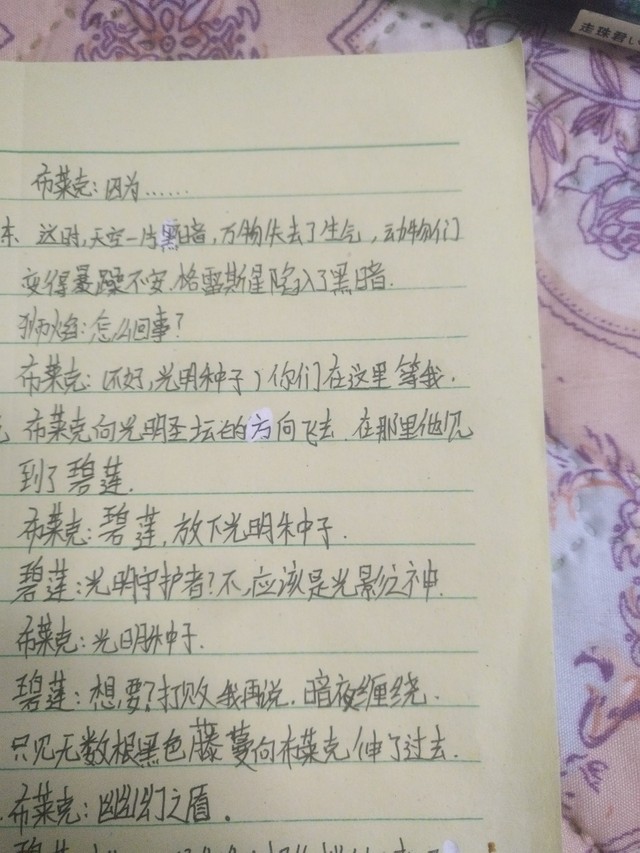 走珠
布莱克:因为……
这时,天空一片黑暗,万物失去了生气,动物们
变得暴躁不安.格雷斯星陷入了黑暗.
狮焰:怎么回事?
布莱克:(还好,光明种子)你们在这里等我.
布莱克向光明圣坛的方向飞去.在那里他见
到了碧莲.
布莱克:碧莲,放下光明种子.
碧莲:光明守护者?不,应该是光影之神.
布莱克:光明种子.
碧莲:想要?打败我再说.暗夜缠绕.
只见无数根黑色藤蔓向布莱克伸了过去.
布莱克:幽幻之盾.
碧莲: